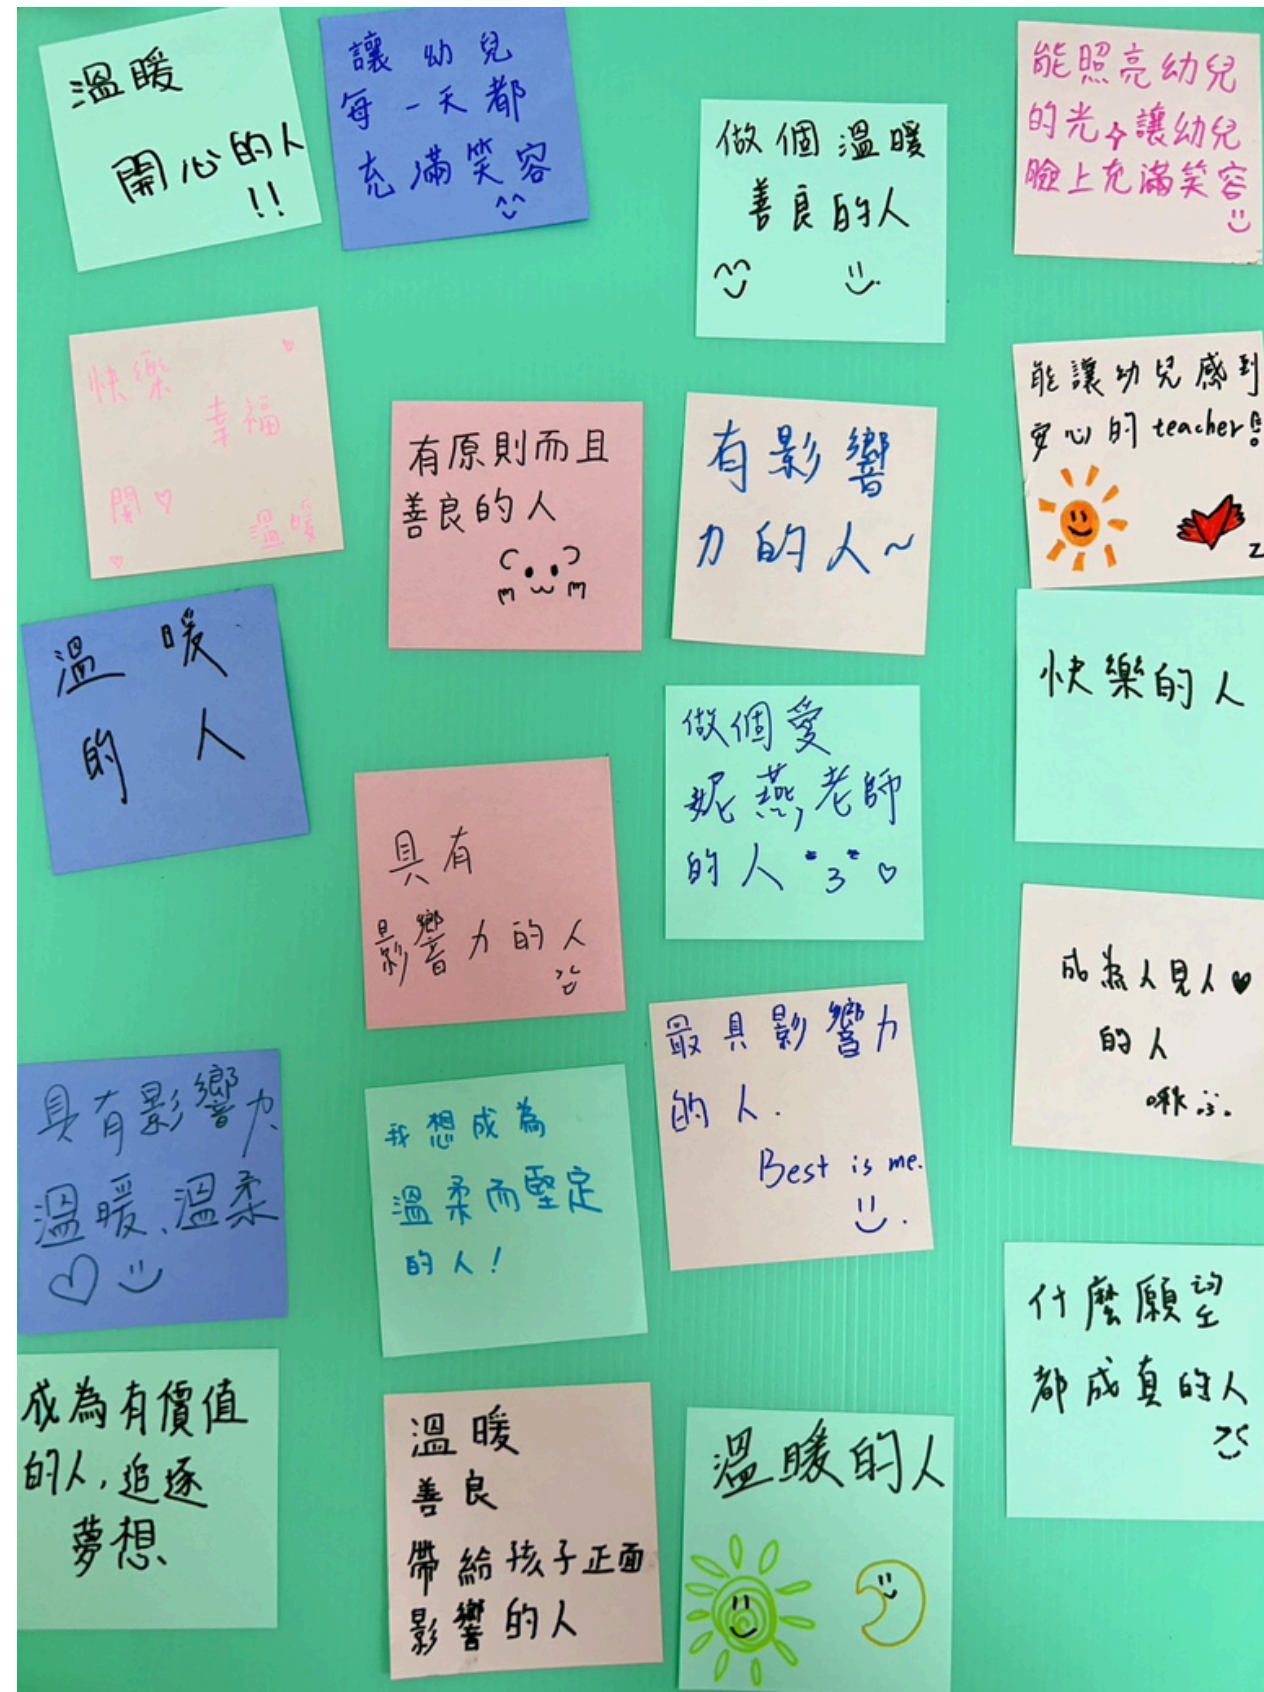 溫暖
開心的人
!!
讓幼兒
每一天都
充滿笑容
^^
做個溫暖
善良的人
能照亮幼兒
的光，讓幼兒
臉上充滿笑容
快樂
幸福
開♡
溫暖
有原則而且
善良的人
有影響
力的人~
能讓幼兒感到
安心的teacher!!
溫暖
的人
做個愛
妮燕老師
的人 *3* ♡
快樂的人
具有
影響力的人
成為人見人♥
的人
最具影響力
的人.
Best is me.
具有影響力
溫暖、溫柔
我想成為
溫柔而堅定
的人!
什麼願望
都成真的人
成為有價值
的人,追逐
夢想、
溫暖
善良
帶給孩子正面
影響的人
溫暖的人